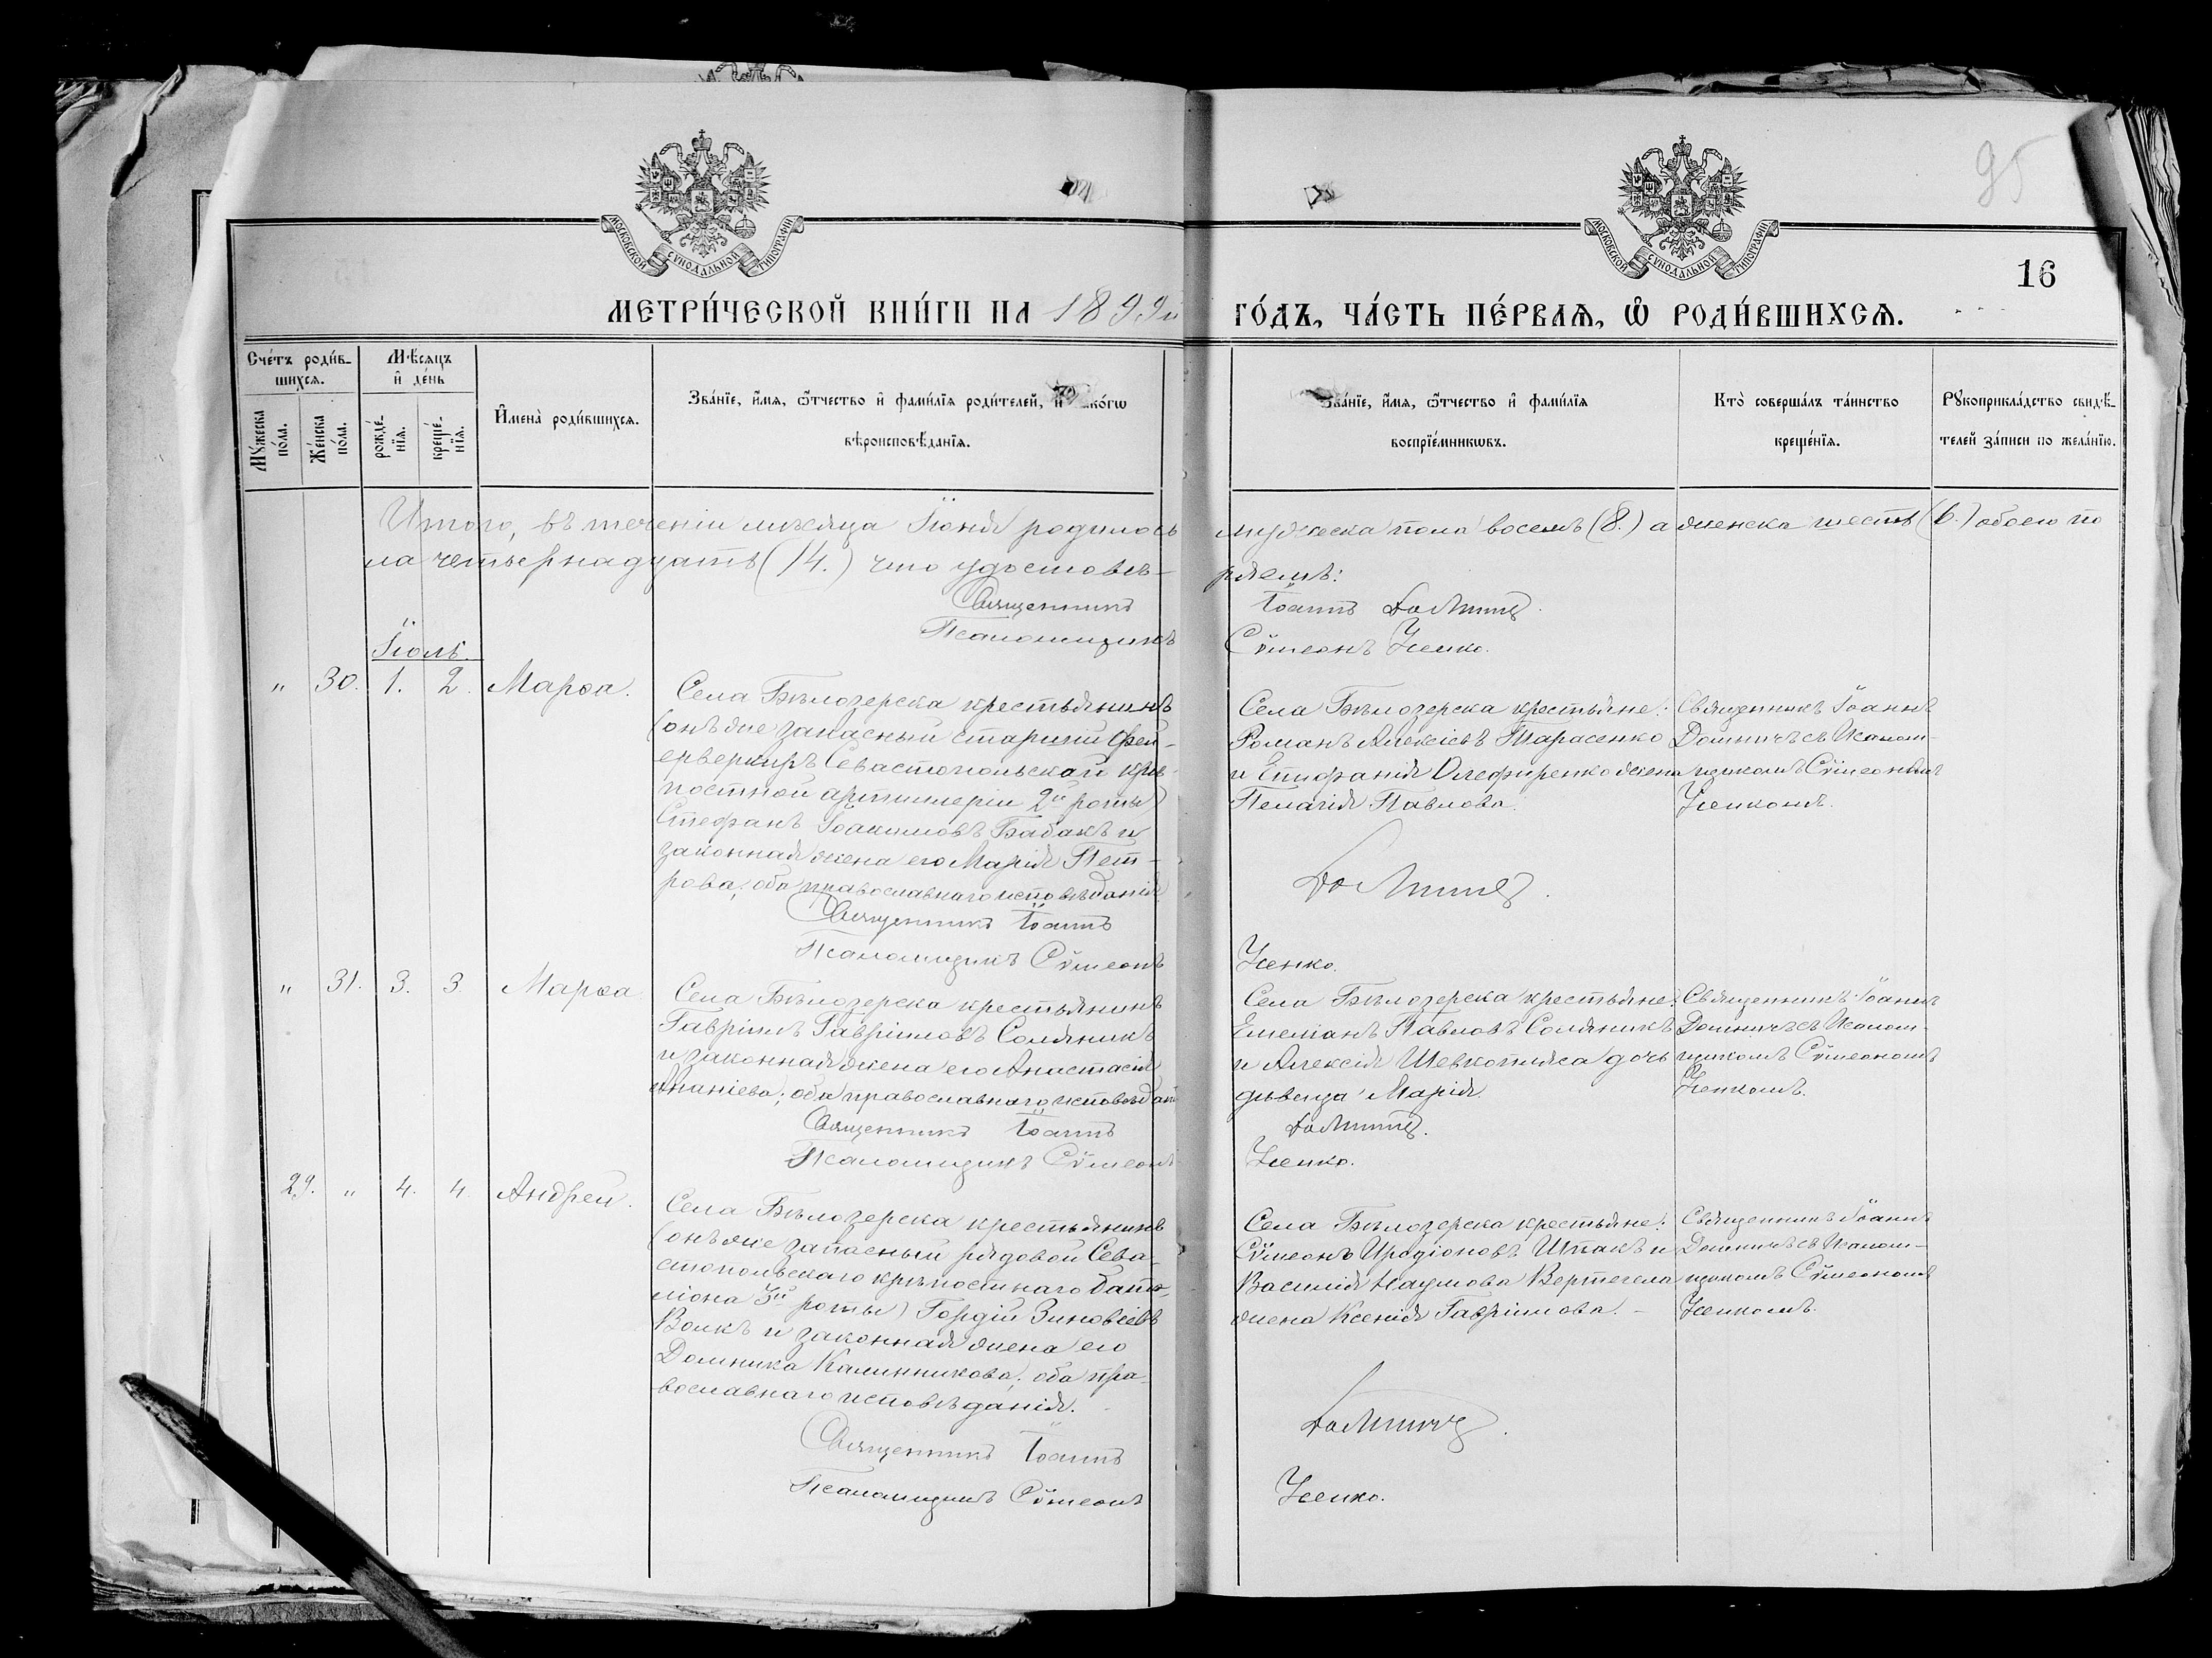 95
16
МОСКОВСКОЙ СѴНОДАЛЬНОЙ ТИПОГРАФІИ
МОСКОВСКОЙ СѴНОДАЛЬНОЙ ТИПОГРАФІИ
МЕТРИ́ЧЕСКОЙ КНИ́ГИ НА 1899й ГО́ДЪ, ЧА́СТЬ ПЕ́РВАѦ, Ѡ҆ РОДИ́ВШИХСѦ.
Сче́тъ роди́в-
шихсѧ.
Мѹ́жеска по́ла.
Же́нска по́ла.
Мѣ́сяцъ
и҆ де́нь
рожде́-
нїѧ.
креще́-
нїѧ.
И҆мена̀ роди́вшихсѧ.
Зва́нїе, и҆́мѧ, ѻ҆́тчество и҆ фами́лїѧ роди́телей, и҆ како́гѡ
вѣроисповѣ́данїѧ.
Зва́нїе, и҆́мѧ, ѻ҆́тчество и҆ фами́лїѧ
воспрїе́мникѡвъ.
Кто̀ соверша́лъ та́инство
креще́нїѧ.
Рѹкоприкла́дство свидѣ́-
телей за́писи по жела́нїю.
Итого, въ теченіи мѣсяца Іюня родилось мужеска пола восемь (8.) а женска шесть (6.) обоего по
ла четырнадцать (14.) что удостовѣ-
ряемъ:
Священникъ Іоаннъ Домнич
Псаломщикъ Сѵмеонъ Усенко.
Іюль.
" 30. 1. 2. Марѳа.
Села Бѣлозерска крестьянинъ
(онъ же запасный старшій фей-
ерверкеръ Севастопольской крѣ-
постной артиллеріи 2й роты)
Стефанъ Іоакимовъ Бабакъ и
законная жена его Марія Пет-
рова; оба православнаго исповѣданія
Священникъ Іоаннъ
Псаломщикъ Сѵмеонъ
Села Бѣлозерска крестьяне:
Романъ Алексіевъ Тарасенко
и Епифанія Олефиренко жена
Пелагія Павлова.
Домнич.
Усенко.
Священникъ Іоаннъ
Домничъ съ Псалом-
щикомъ Сѵмеономъ
Усенкомъ.
" 31. 3. 3. Марѳа
Села Бѣлозерска крестьянинъ
Гавріилъ Гавріиловъ Соляникъ
и законная жена его Анастасія
Ананіева; оба православнаго исповѣдані
Священникъ Іоаннъ
Псаломщикъ Сѵмеонъ
Села Бѣлозерска крестьяне:
Емеліанъ Павловъ Соляникъ
и Алексія Шевкопляса дочь
дѣвица Марія.
Домнич.
Усенко.
Священникъ Іоаннъ
Домничъ съ Псалом-
щикомъ Сѵмеономъ
Усенкомъ.
29. " 4. 4. Андрей.
Села Бѣлозерска крестьянинъ
(онъ же запасный рядовой Сева-
стопольскаго крѣпостнаго бата-
ліона 3й роты) Гордій Зиновіевъ
Волкъ и законная жена его
Домника Калинникова; оба пра-
вославнаго исповѣданія.
Священникъ Іоаннъ
Псаломщикъ Сѵмеонъ
Села Бѣлозерска крестьяне:
Сѵмеонъ Иродіоновъ Шпакъ и
Василія Наумова Вертегела
жена Ксенія Гавріилова. -
Домнич.
Усенко.
Священникъ Іоаннъ
Домничъ съ Псалом-
щикомъ Сѵмеономъ
Усенкомъ.